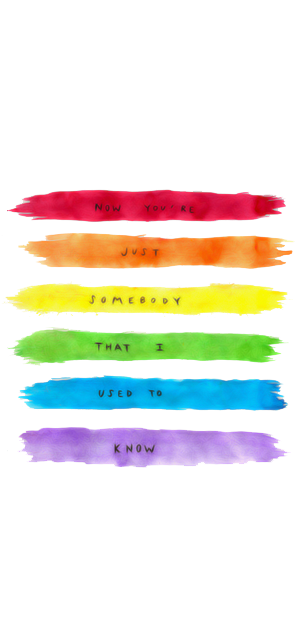 NOW YOU'RE
JUST
SOMEBODY
THAT I
USED TO
KNOW